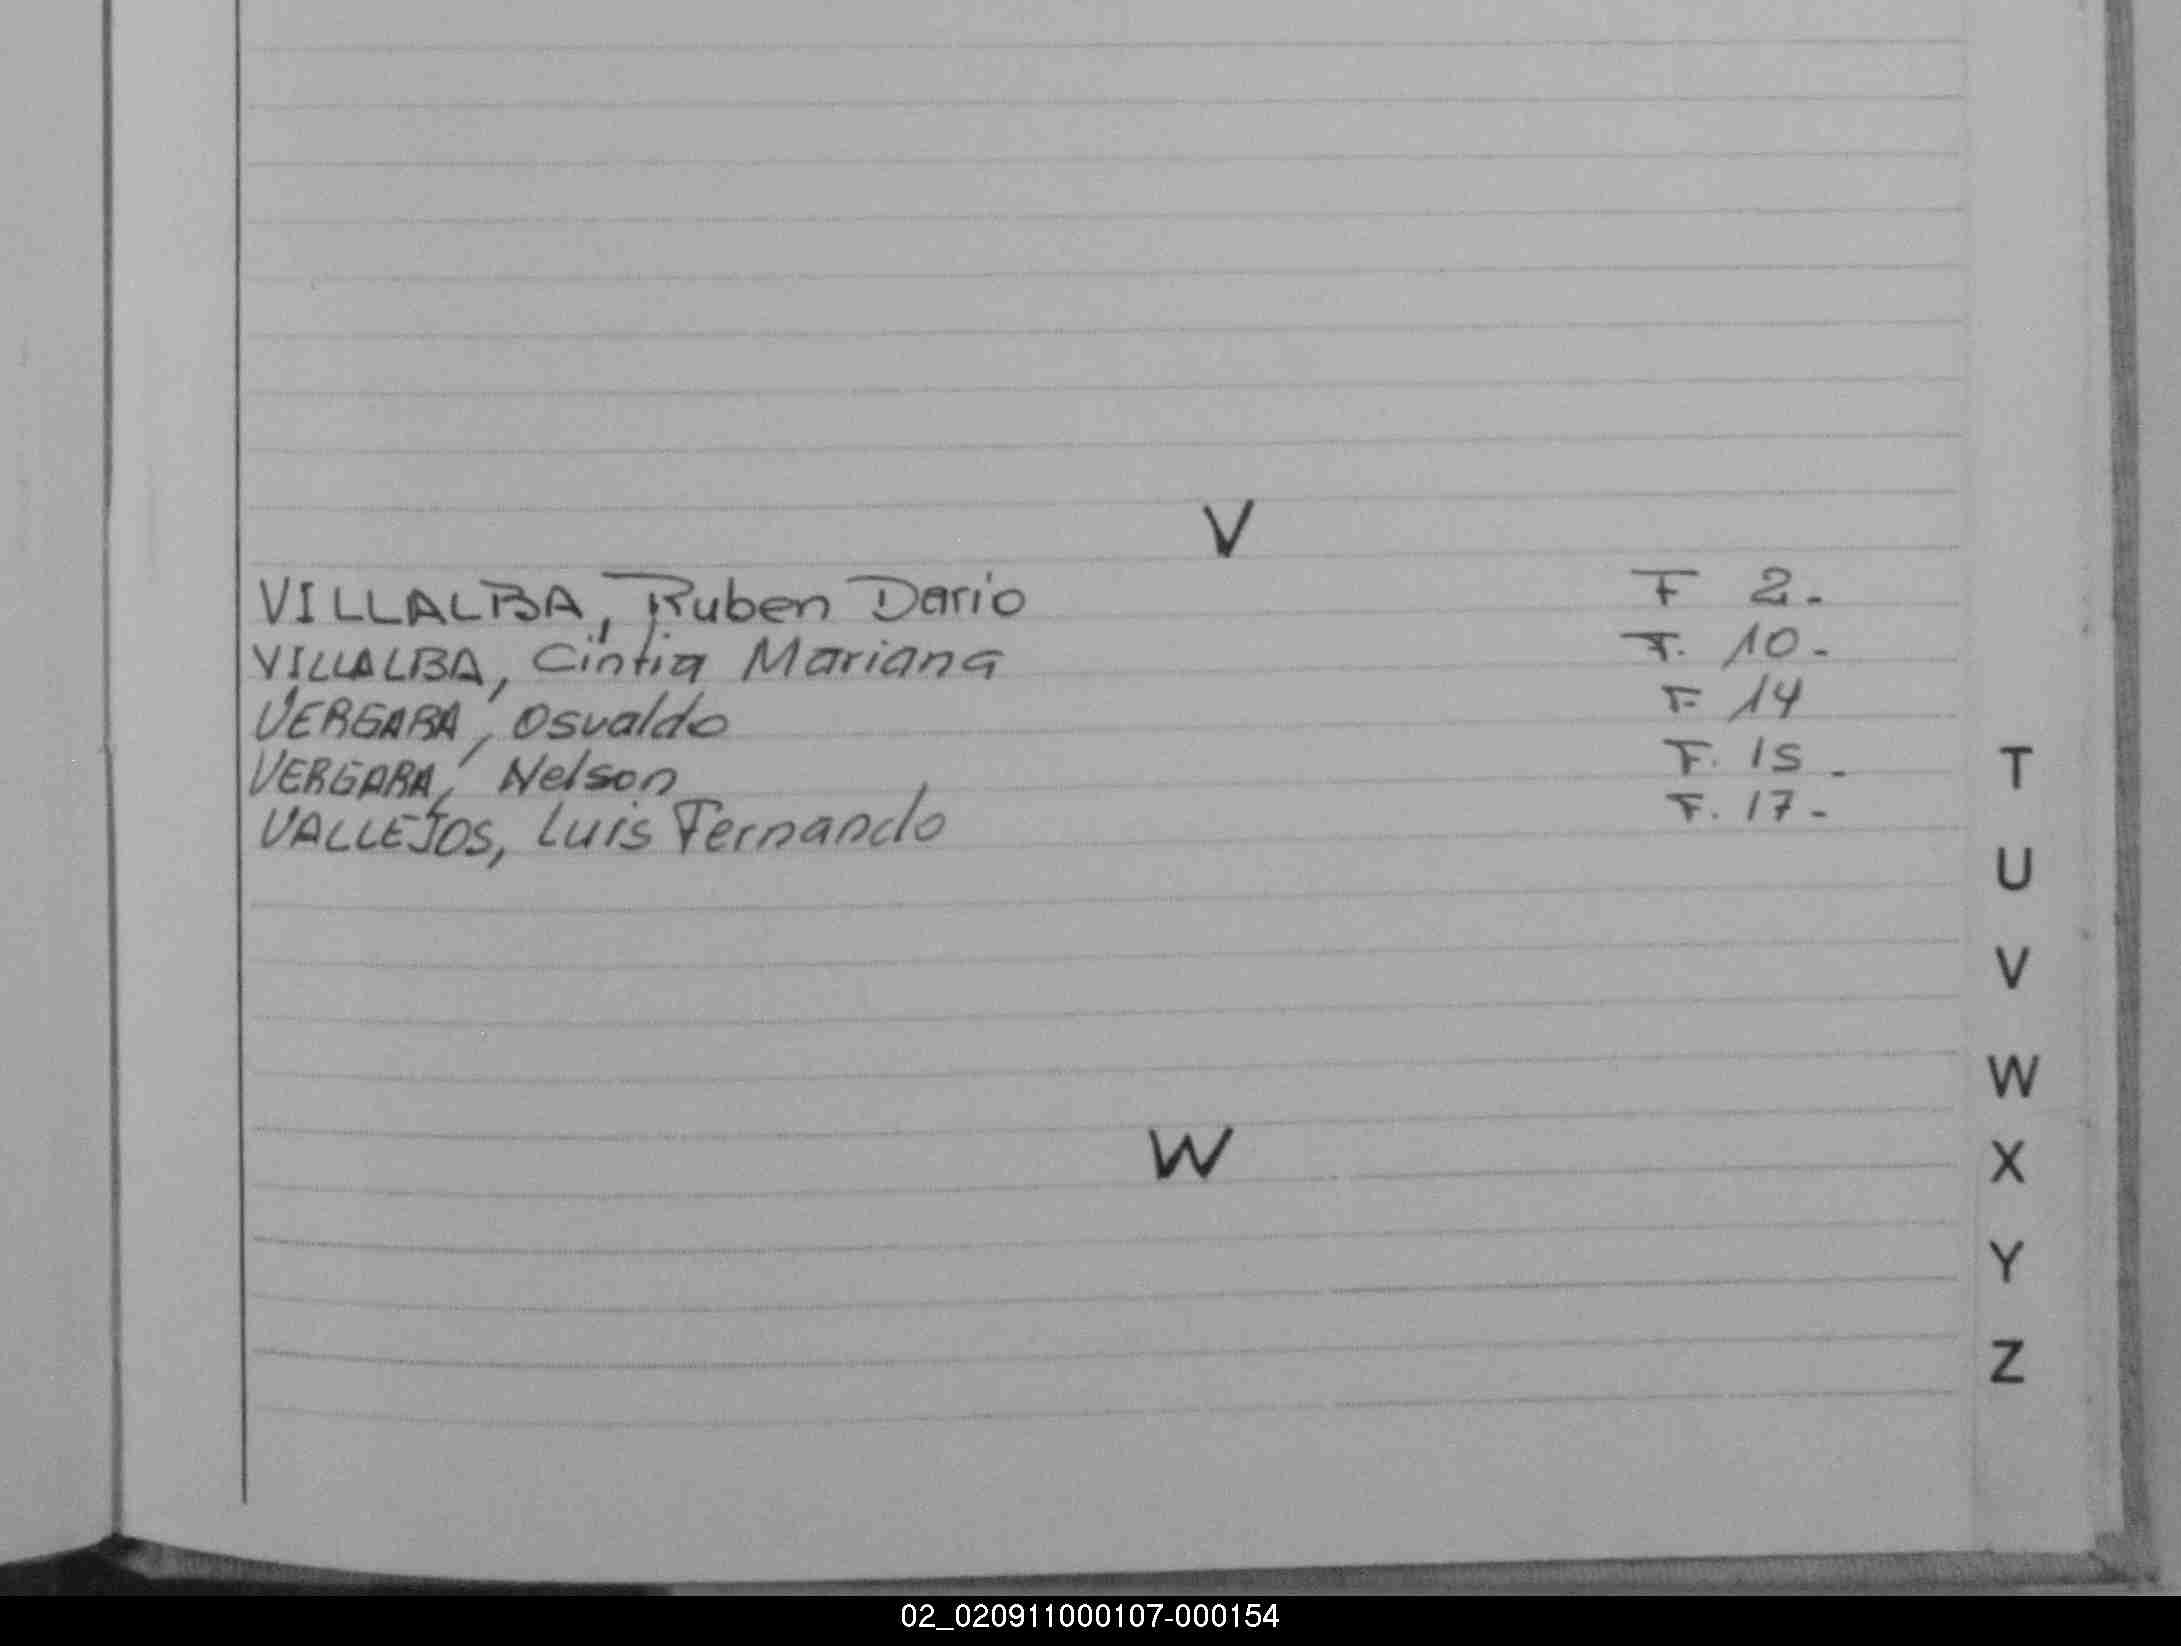 V
VILLALBA, Ruben Dario F 2.-
VILLALBA, Cintia Mariana F. 10.-
VERGARA, Osvaldo F 14
VERGARA, Nelson F. 15.-
VALLEJOS, Luis Fernando F. 17.-
W
T
U
V
W
X
Y
Z
02_020911000107-000154